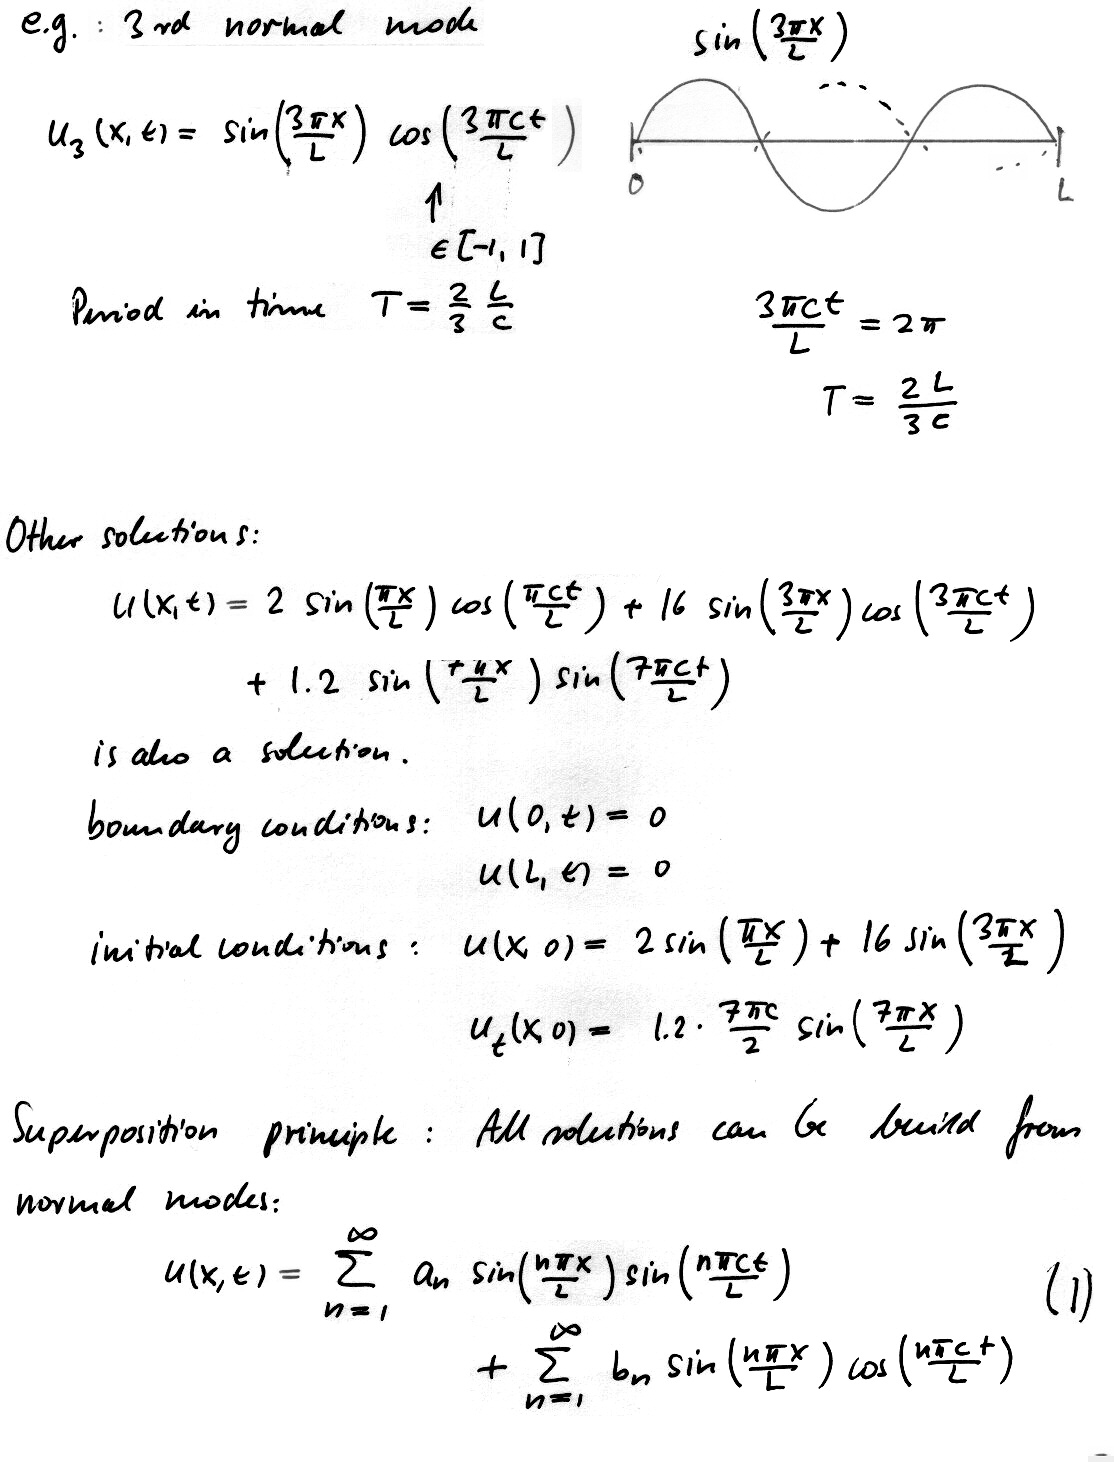 e.g. : 3rd normal mode
sin(3πx/L)
u₃(x, t) = sin(3πx/L) cos(3πct/L)
↑
0 L
∈ [-1, 1]
Period in time T = 2/3 L/c
3πct/L = 2π
T = 2L/3c
Other solutions:
u(x, t) = 2 sin(πx/L) cos(πct/L) + 16 sin(3πx/L) cos(3πct/L)
+ 1.2 sin(7πx/L) sin(7πct/L)
is also a solution.
boundary conditions: u(0, t) = 0
u(L, t) = 0
initial conditions : u(x, 0) = 2 sin(πx/L) + 16 sin(3πx/L)
u_t(x, 0) = 1.2 · 7πc/2 sin(7πx/L)
Superposition principle : All solutions can be build from
normal modes:
u(x, t) = ∑_{n=1}^{∞} aₙ sin(nπx/L) sin(nπct/L) (1)
+ ∑_{n=1}^{∞} bₙ sin(nπx/L) cos(nπct/L)